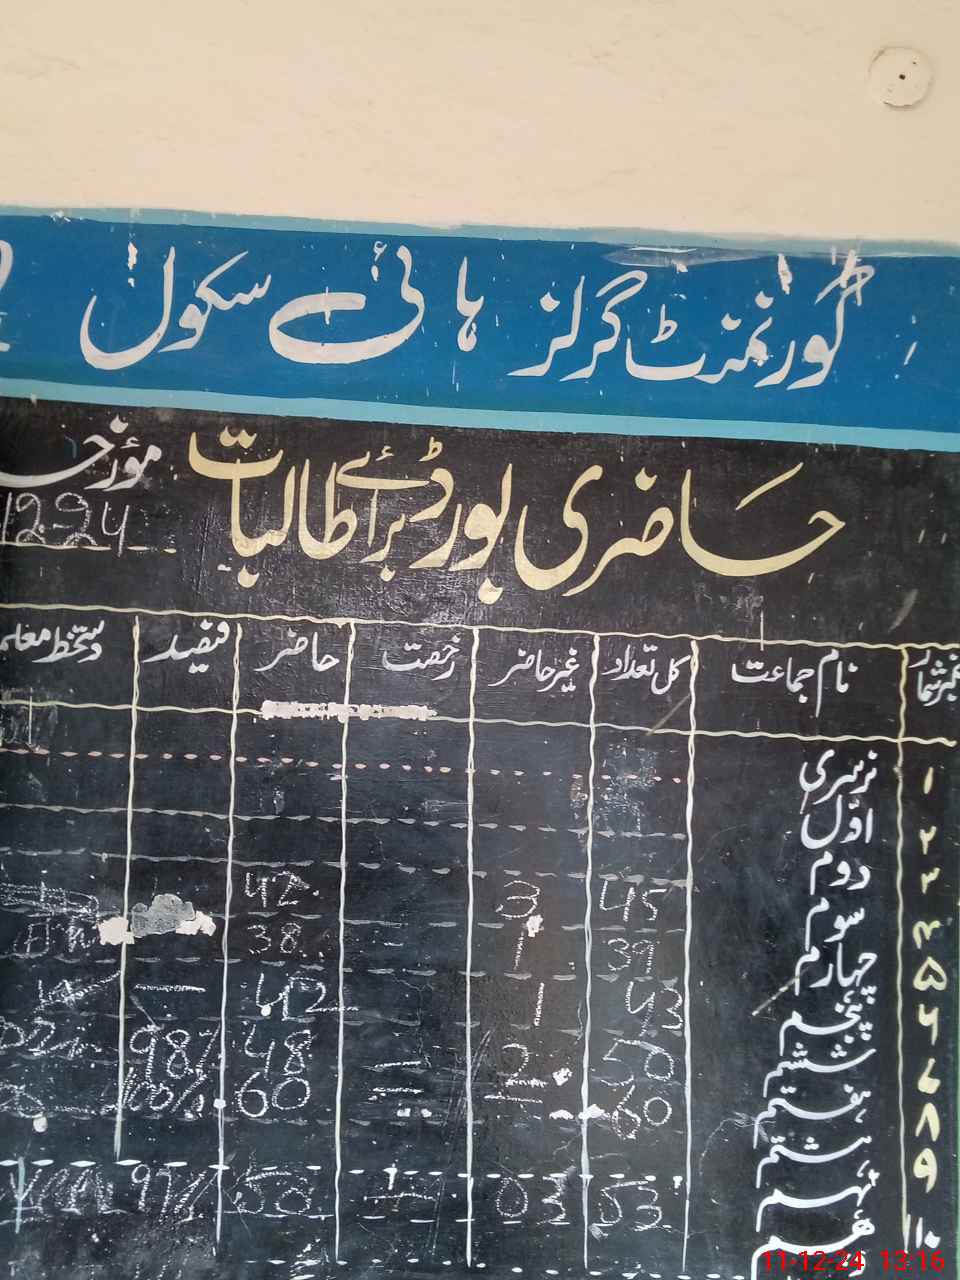 گورنمنٹ گرلز ہائی سکول
حاضری بورڈ برائے طالبات
12-24
نمبر شمار نام جماعت کل تعداد غیر حاضر رخصت حاضر فیصد دستخط معلمہ
۱ نرسری
۲ اوّل
۳ دوم
۴ سوم 45 3 42
۵ چہارم 39 1 38
۶ پنجم 43 1 42
۷ ششم 50 2 48 98%
۸ ہفتم 60 60 100%
۹ ہشتم
۱۰ نہم 53 03 50 97%
دہم
11-12-24 13:16